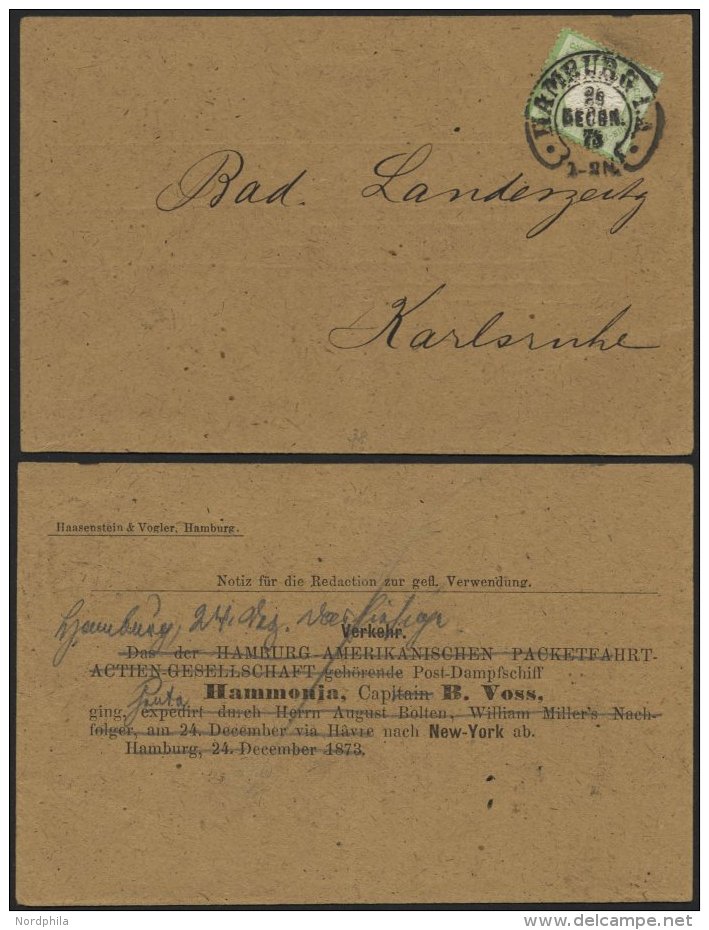 HAMBURG I.A.
DECBR.
Bad. Landeszeitg
Karlsruhe
Haasenstein & Vogler, Hamburg.
Notiz für die Redaction zur gefl. Verwendung.
Hamburg, 24. Dez. Das hiesige
Verkehr.
Das der HAMBURG-AMERIKANISCHEN PACKETFAHRT-
ACTIEN-GESELLSCHAFT gehörende Post-Dampfschiff
Hammonia, Capitain B. Voss,
heute
ging, expedirt durch Herrn August Bolten, William Miller's Nach-
folger, am 24. December via Hâvre nach New-York ab.
Hamburg, 24. December 1873.
Nordphila
www.delcampe.net